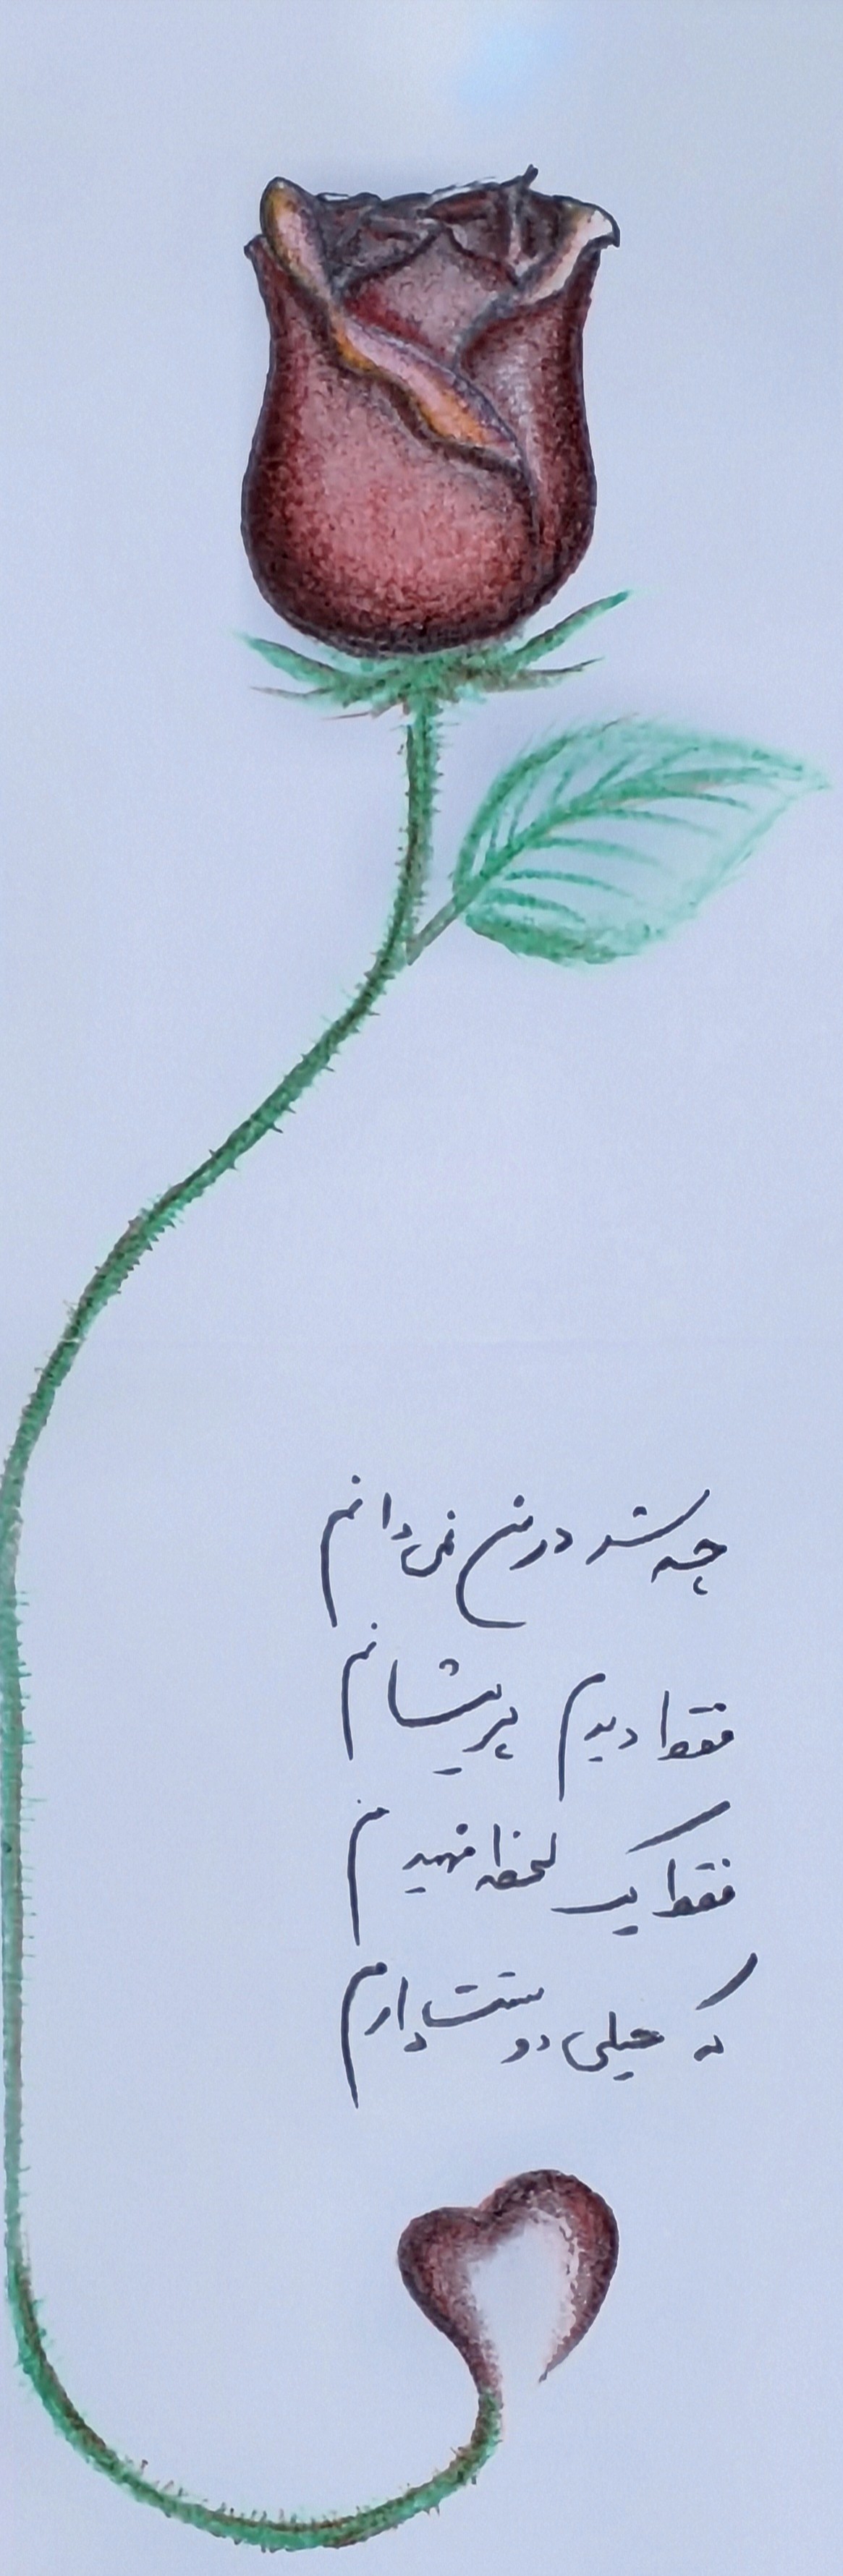 چه شد در من نمی دانم
فقط دیدم پریشانم
فقط یک لحظه فهمیدم
که خیلی دوستت دارم